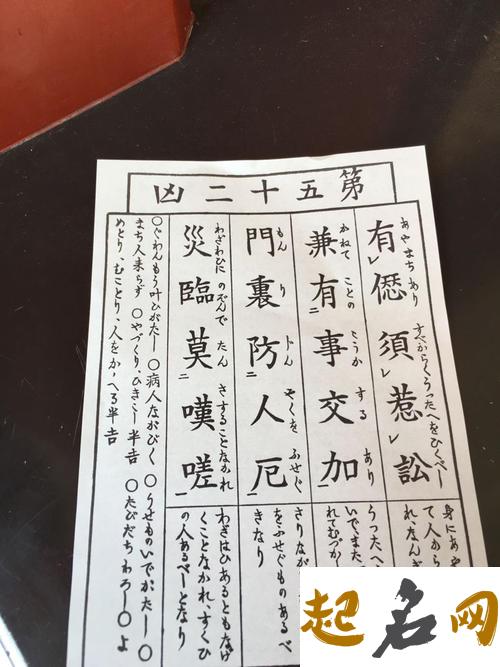 第五十二凶
有僁須惹訟
あやまちあり すべからくうったへをひくべし
兼有事交加
かねて ことの かうか する あり
門裏防人厄
もん り やくを ふせぐ
災臨莫嘆嗟
わざわひに のぞんで たん さすることなかれ
身にあや
て人から
れ、なんぎ
うったへ
いでまた、
れてむづか
さりなが
をふせぐものあるべ
きなり
わざはひあるともなげ
くことなかれ、すくひ
の人あるべしとなり
○ぐわんもう叶ひがたし ○病人ながびく ○うせものいでがたし ○
まち人来らず ○やづくり、ひきこし半吉 ○たびだちわろし ○よ
めとり、むことり、人をかゝへる半吉
起名网